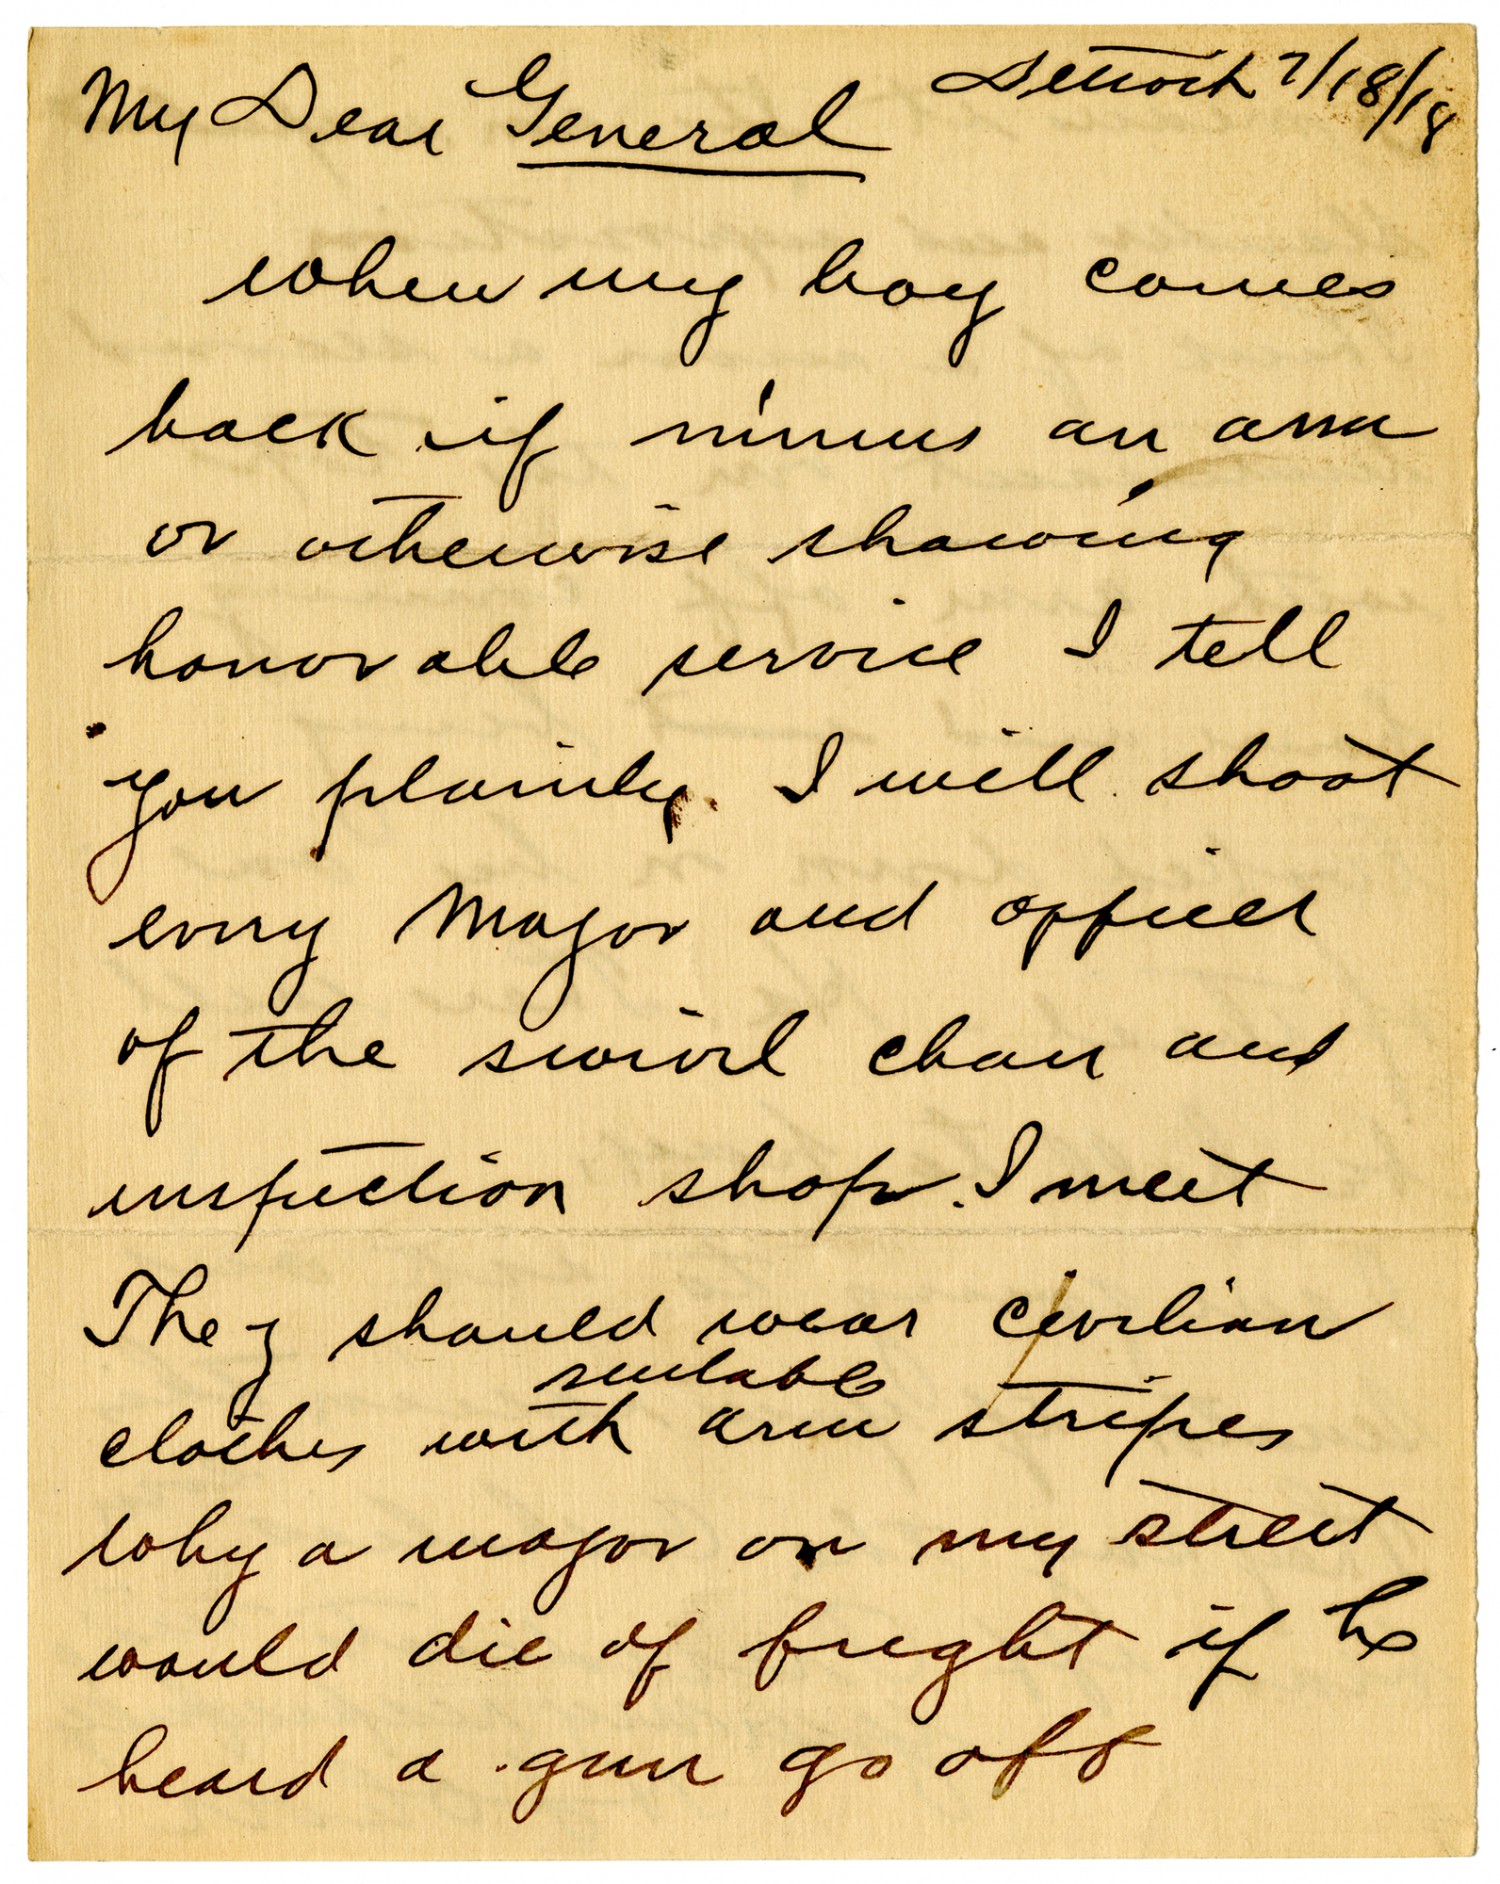 Detroit 7/18/18
My Dear General
when my boy comes
back if minus an arm
or otherwise showing
honorable service I tell
you plainly. I will shoot
every Major and officer
of the swivel chair and
inspection shop. I meet
They should wear civilian
clothes with suitable arm stripes
why a major on my street
would die of fright if he
heard a gun go off